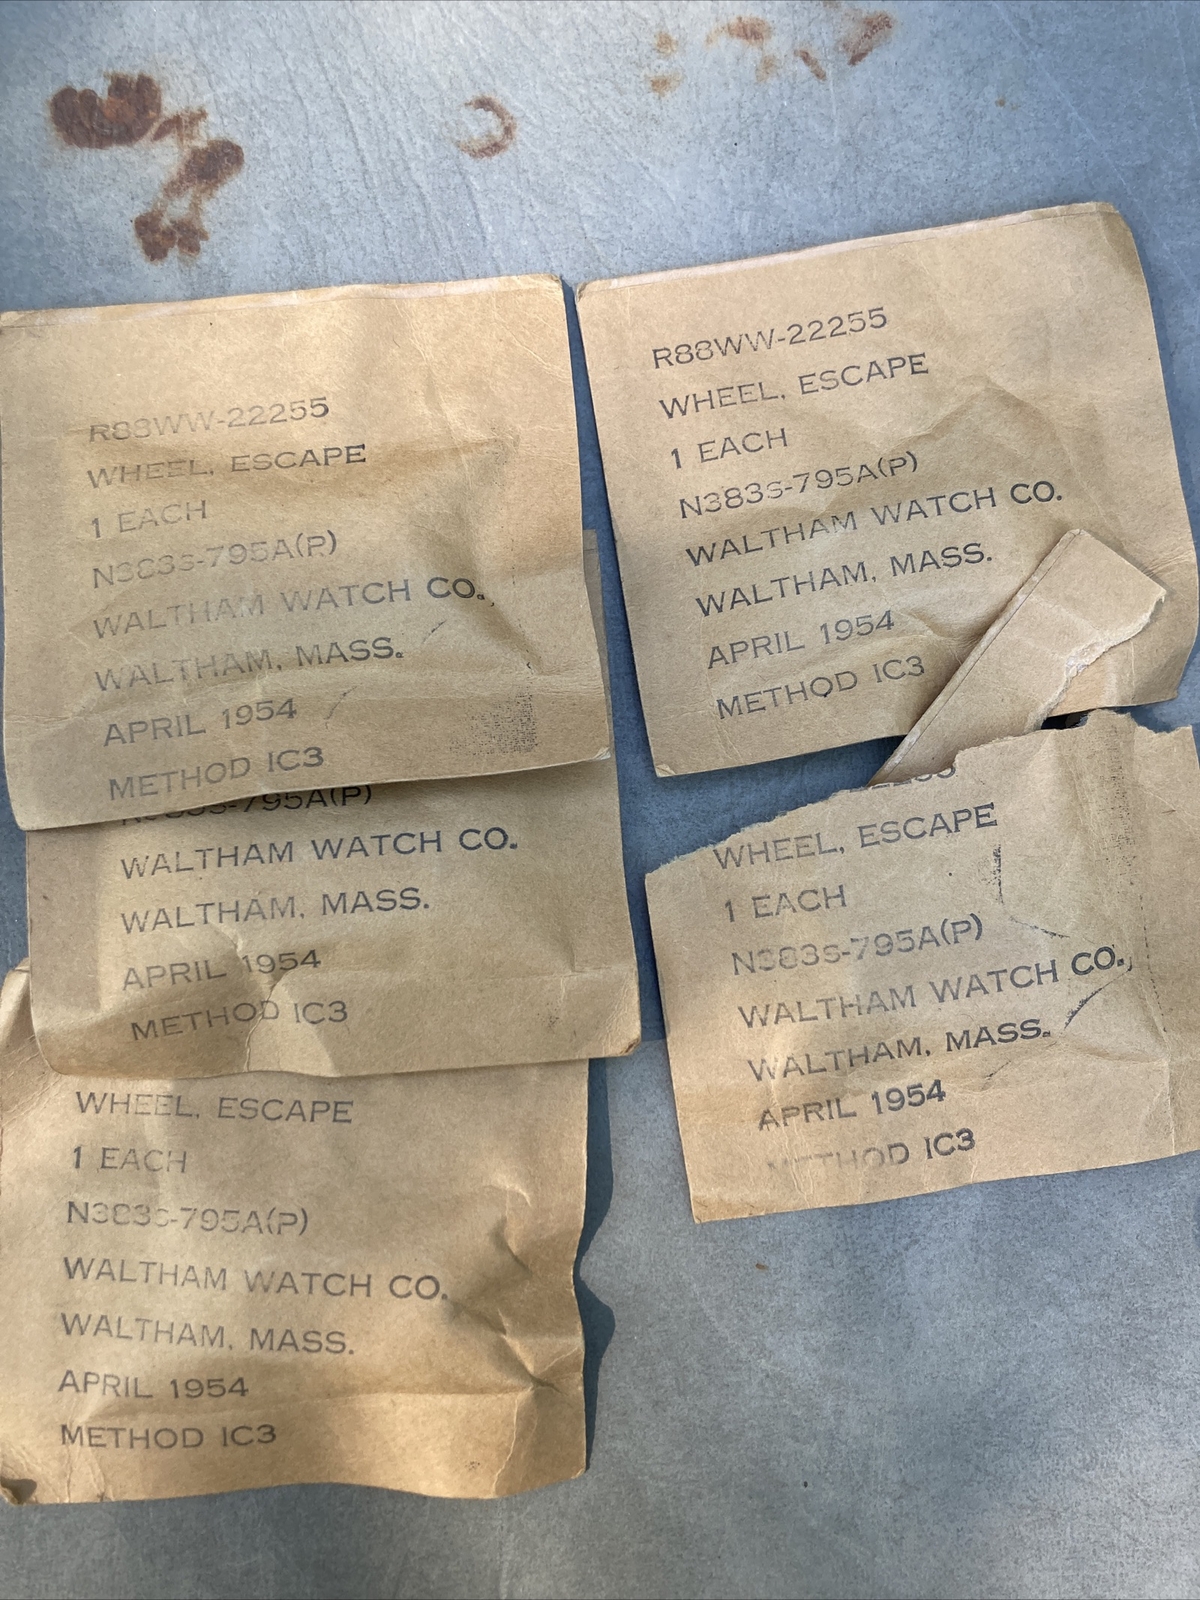 R88WW-22255
WHEEL, ESCAPE
1 EACH
N383s-795A(P)
WALTHAM WATCH CO.,
WALTHAM, MASS.
APRIL 1954
METHOD IC3
R88WW-22255
WHEEL, ESCAPE
1 EACH
N383s-795A(P)
WALTHAM WATCH CO.
WALTHAM, MASS.
APRIL 1954
METHOD IC3
N383s-795A(P)
WALTHAM WATCH CO.
WALTHAM, MASS.
APRIL 1954
METHOD IC3
WHEEL, ESCAPE
1 EACH
N383s-795A(P)
WALTHAM WATCH CO.,
WALTHAM, MASS.
APRIL 1954
METHOD IC3
WHEEL, ESCAPE
1 EACH
N383s-795A(P)
WALTHAM WATCH CO.
WALTHAM, MASS.
APRIL 1954
METHOD IC3